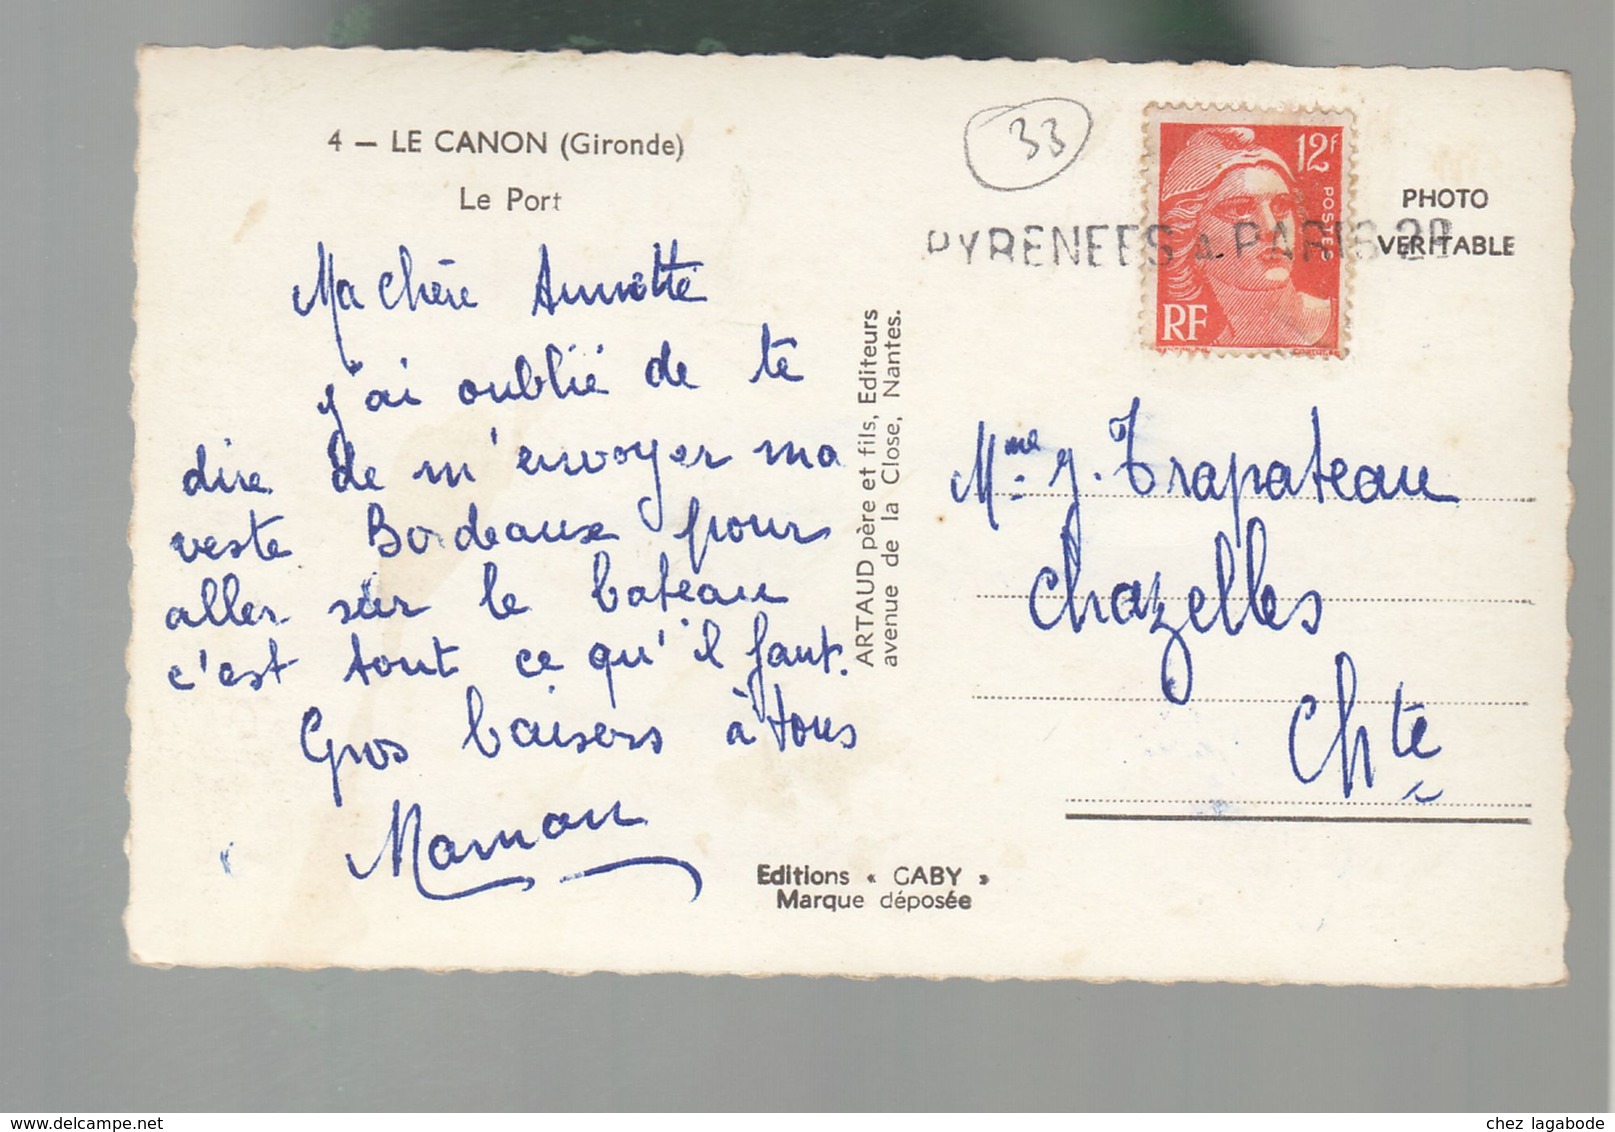 4 — LE CANON (Gironde)
Le Port
Ma chère Annette
j'ai oublié de te
dire de m'envoyer ma
veste Bordeaux pour
aller sur le bateau
c'est tout ce qu'il faut.
Gros baisers à tous
Maman
ARTAUD père et fils, Editeurs
avenue de la Close, Nantes.
Editions « GABY »
Marque déposée
33
12f
POSTES
RF
PHOTO
VERITABLE
PYRENEES A PARIS 2º
Mme J. Trapateau
Chazelles
Chte
chez lagabode